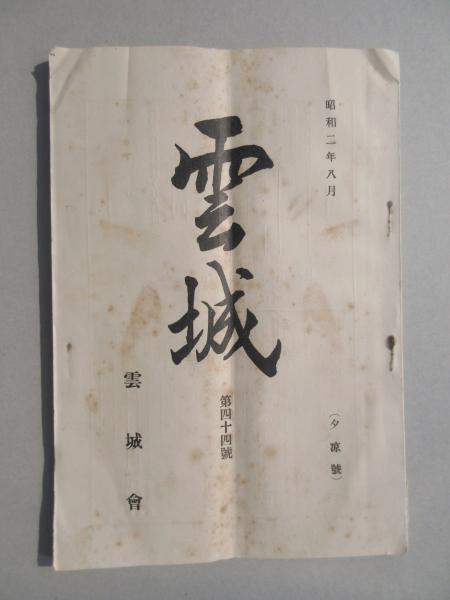 昭和二年八月
(夕凉號)
雲城
第四十四號
雲城會